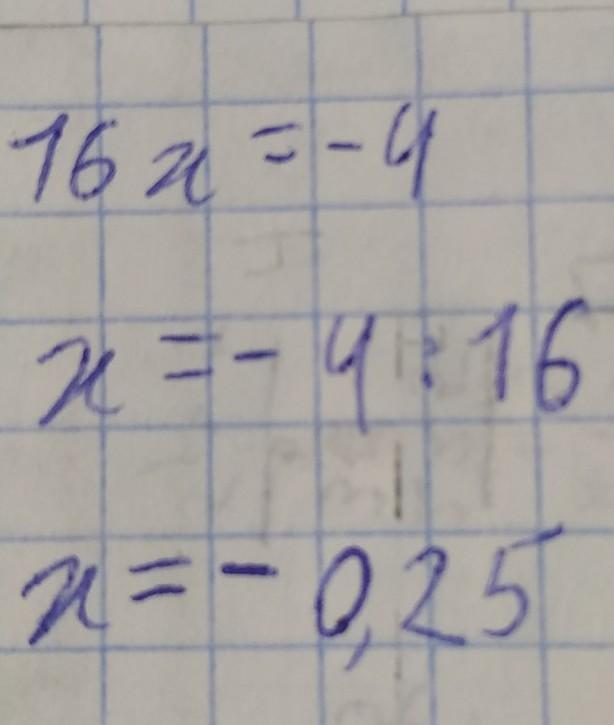 16x = -4
x = -4 : 16
x = -0,25